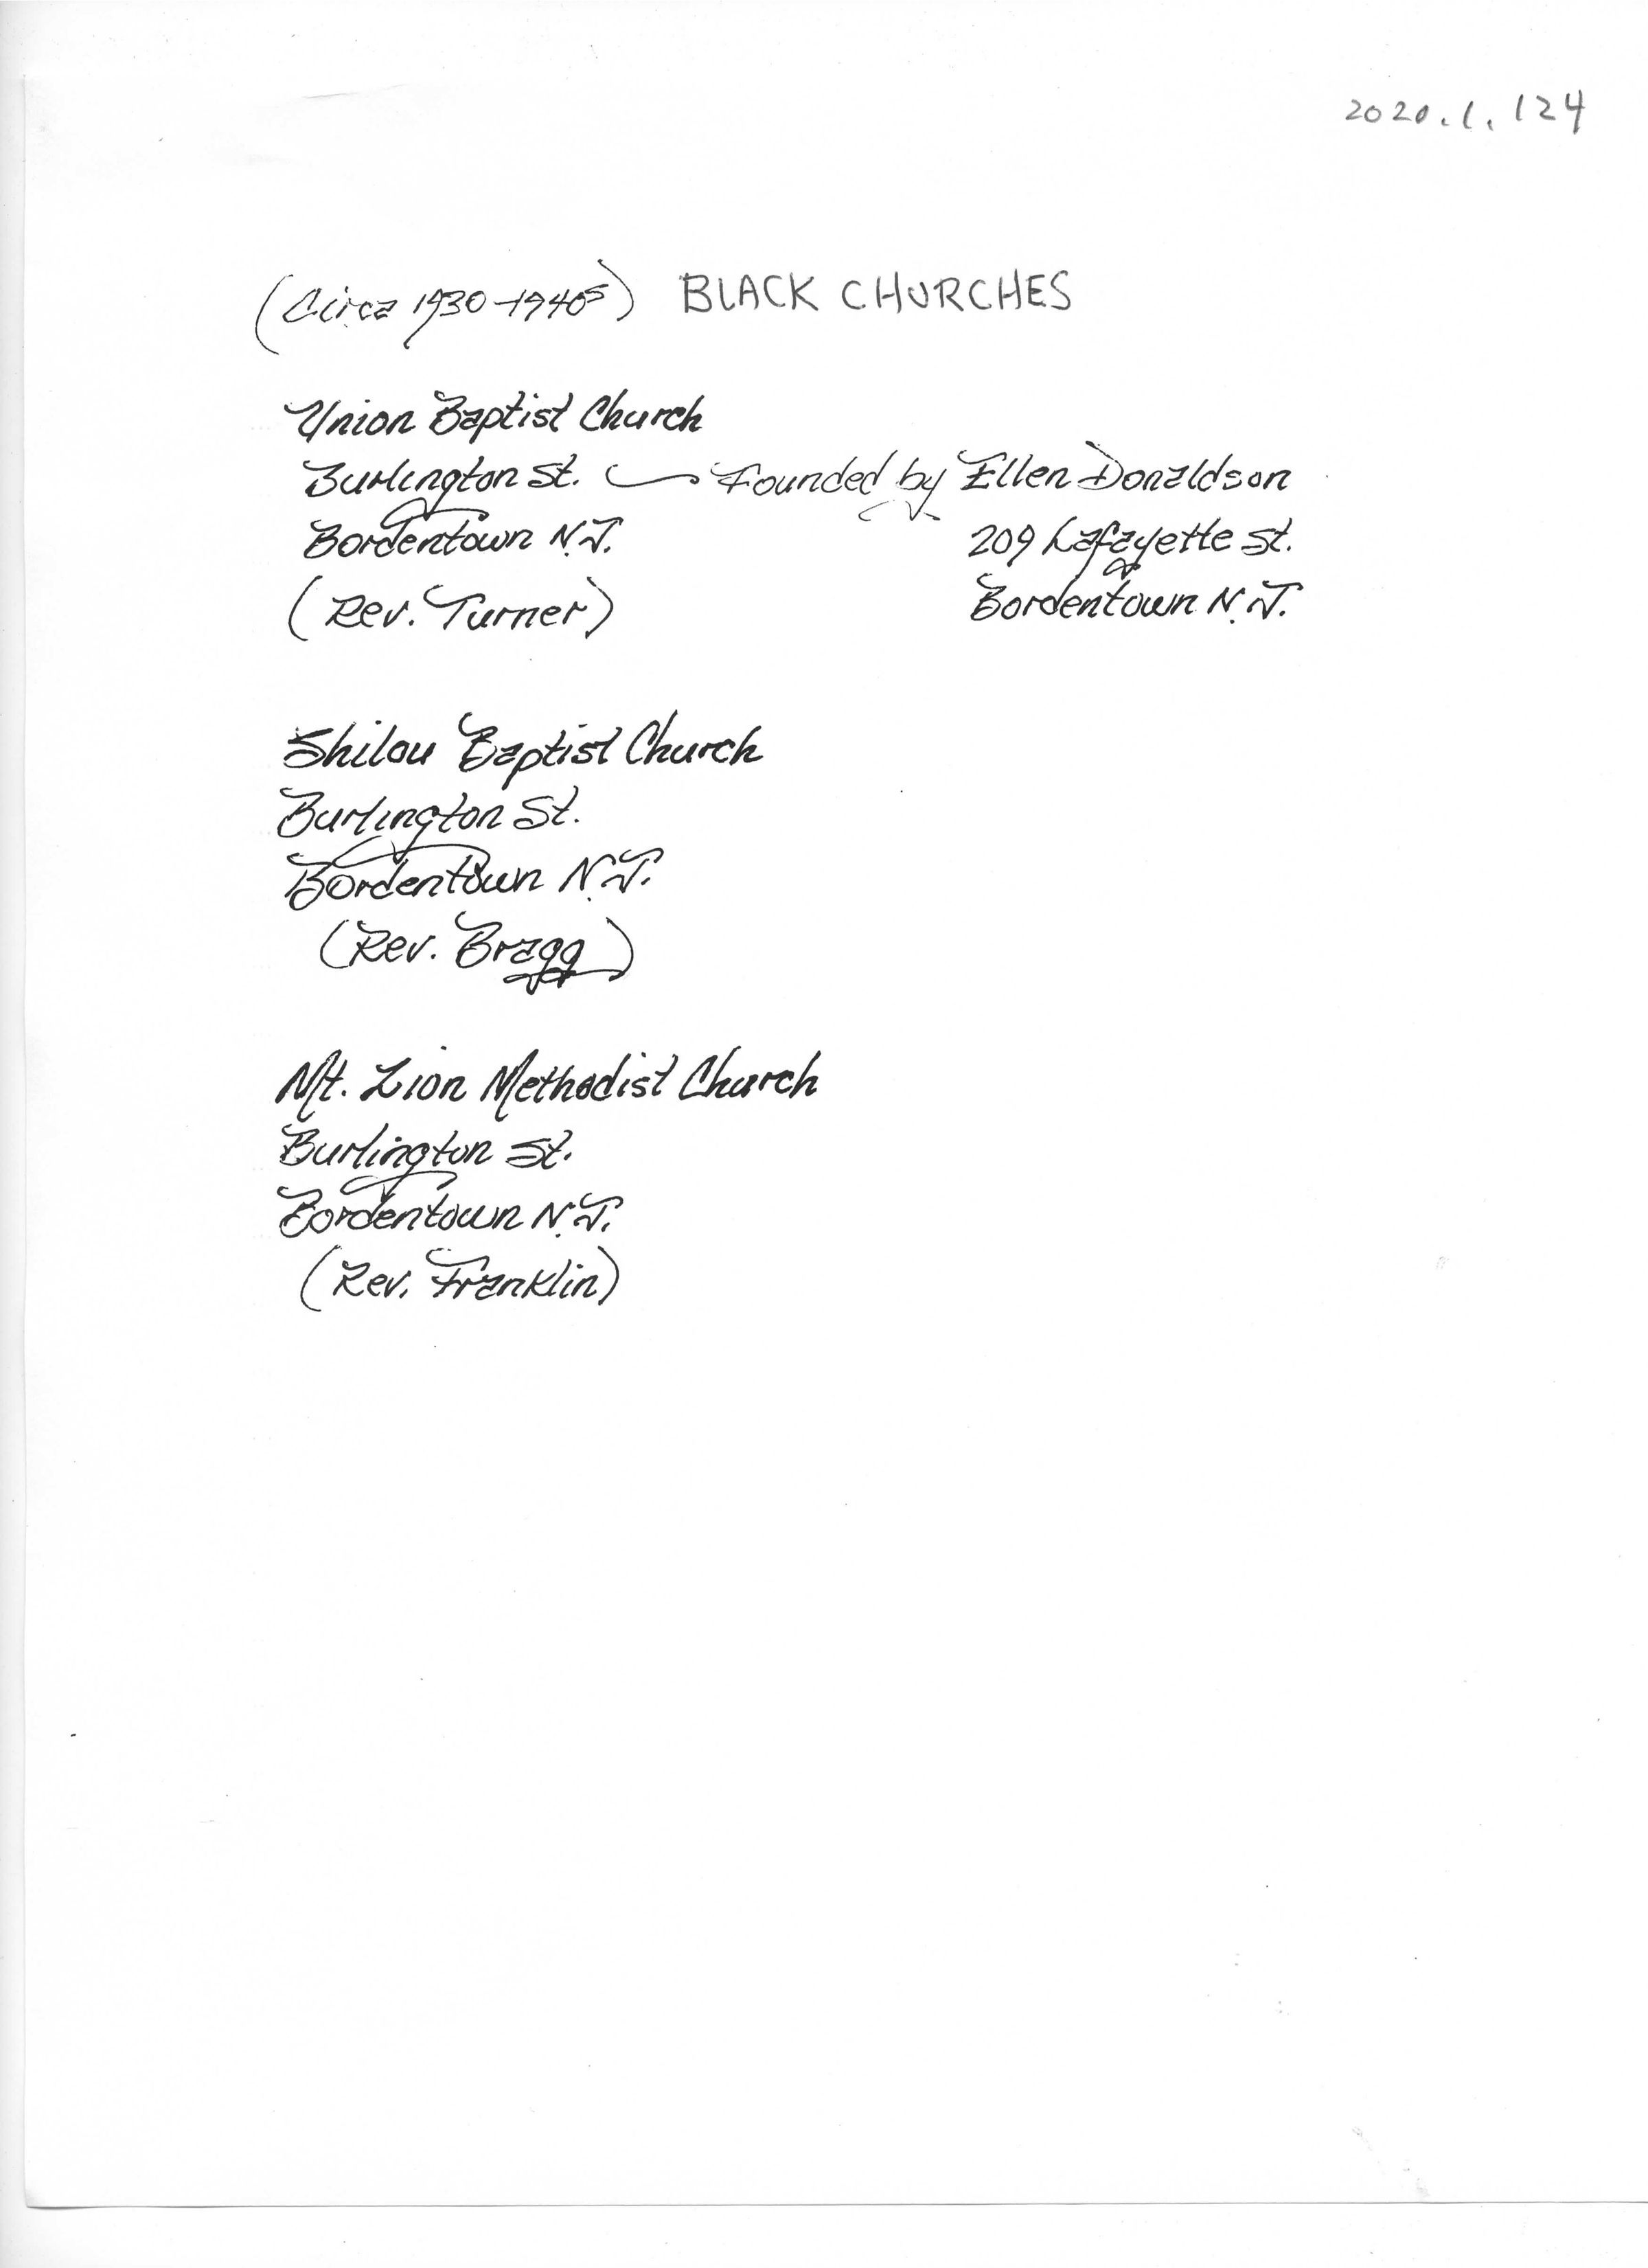 2020.1.124
(Circa 1930-1940s) BLACK CHURCHES
Union Baptist Church
Burlington St. Founded by Ellen Donaldson
Bordentown N.J. 209 Lafayette St.
(Rev. Turner) Bordentown N.J.
Shilou Baptist Church
Burlington St.
Bordentown N.J.
(Rev. Bragg)
Mt. Zion Methodist Church
Burlington St.
Bordentown N.J.
(Rev. Franklin)